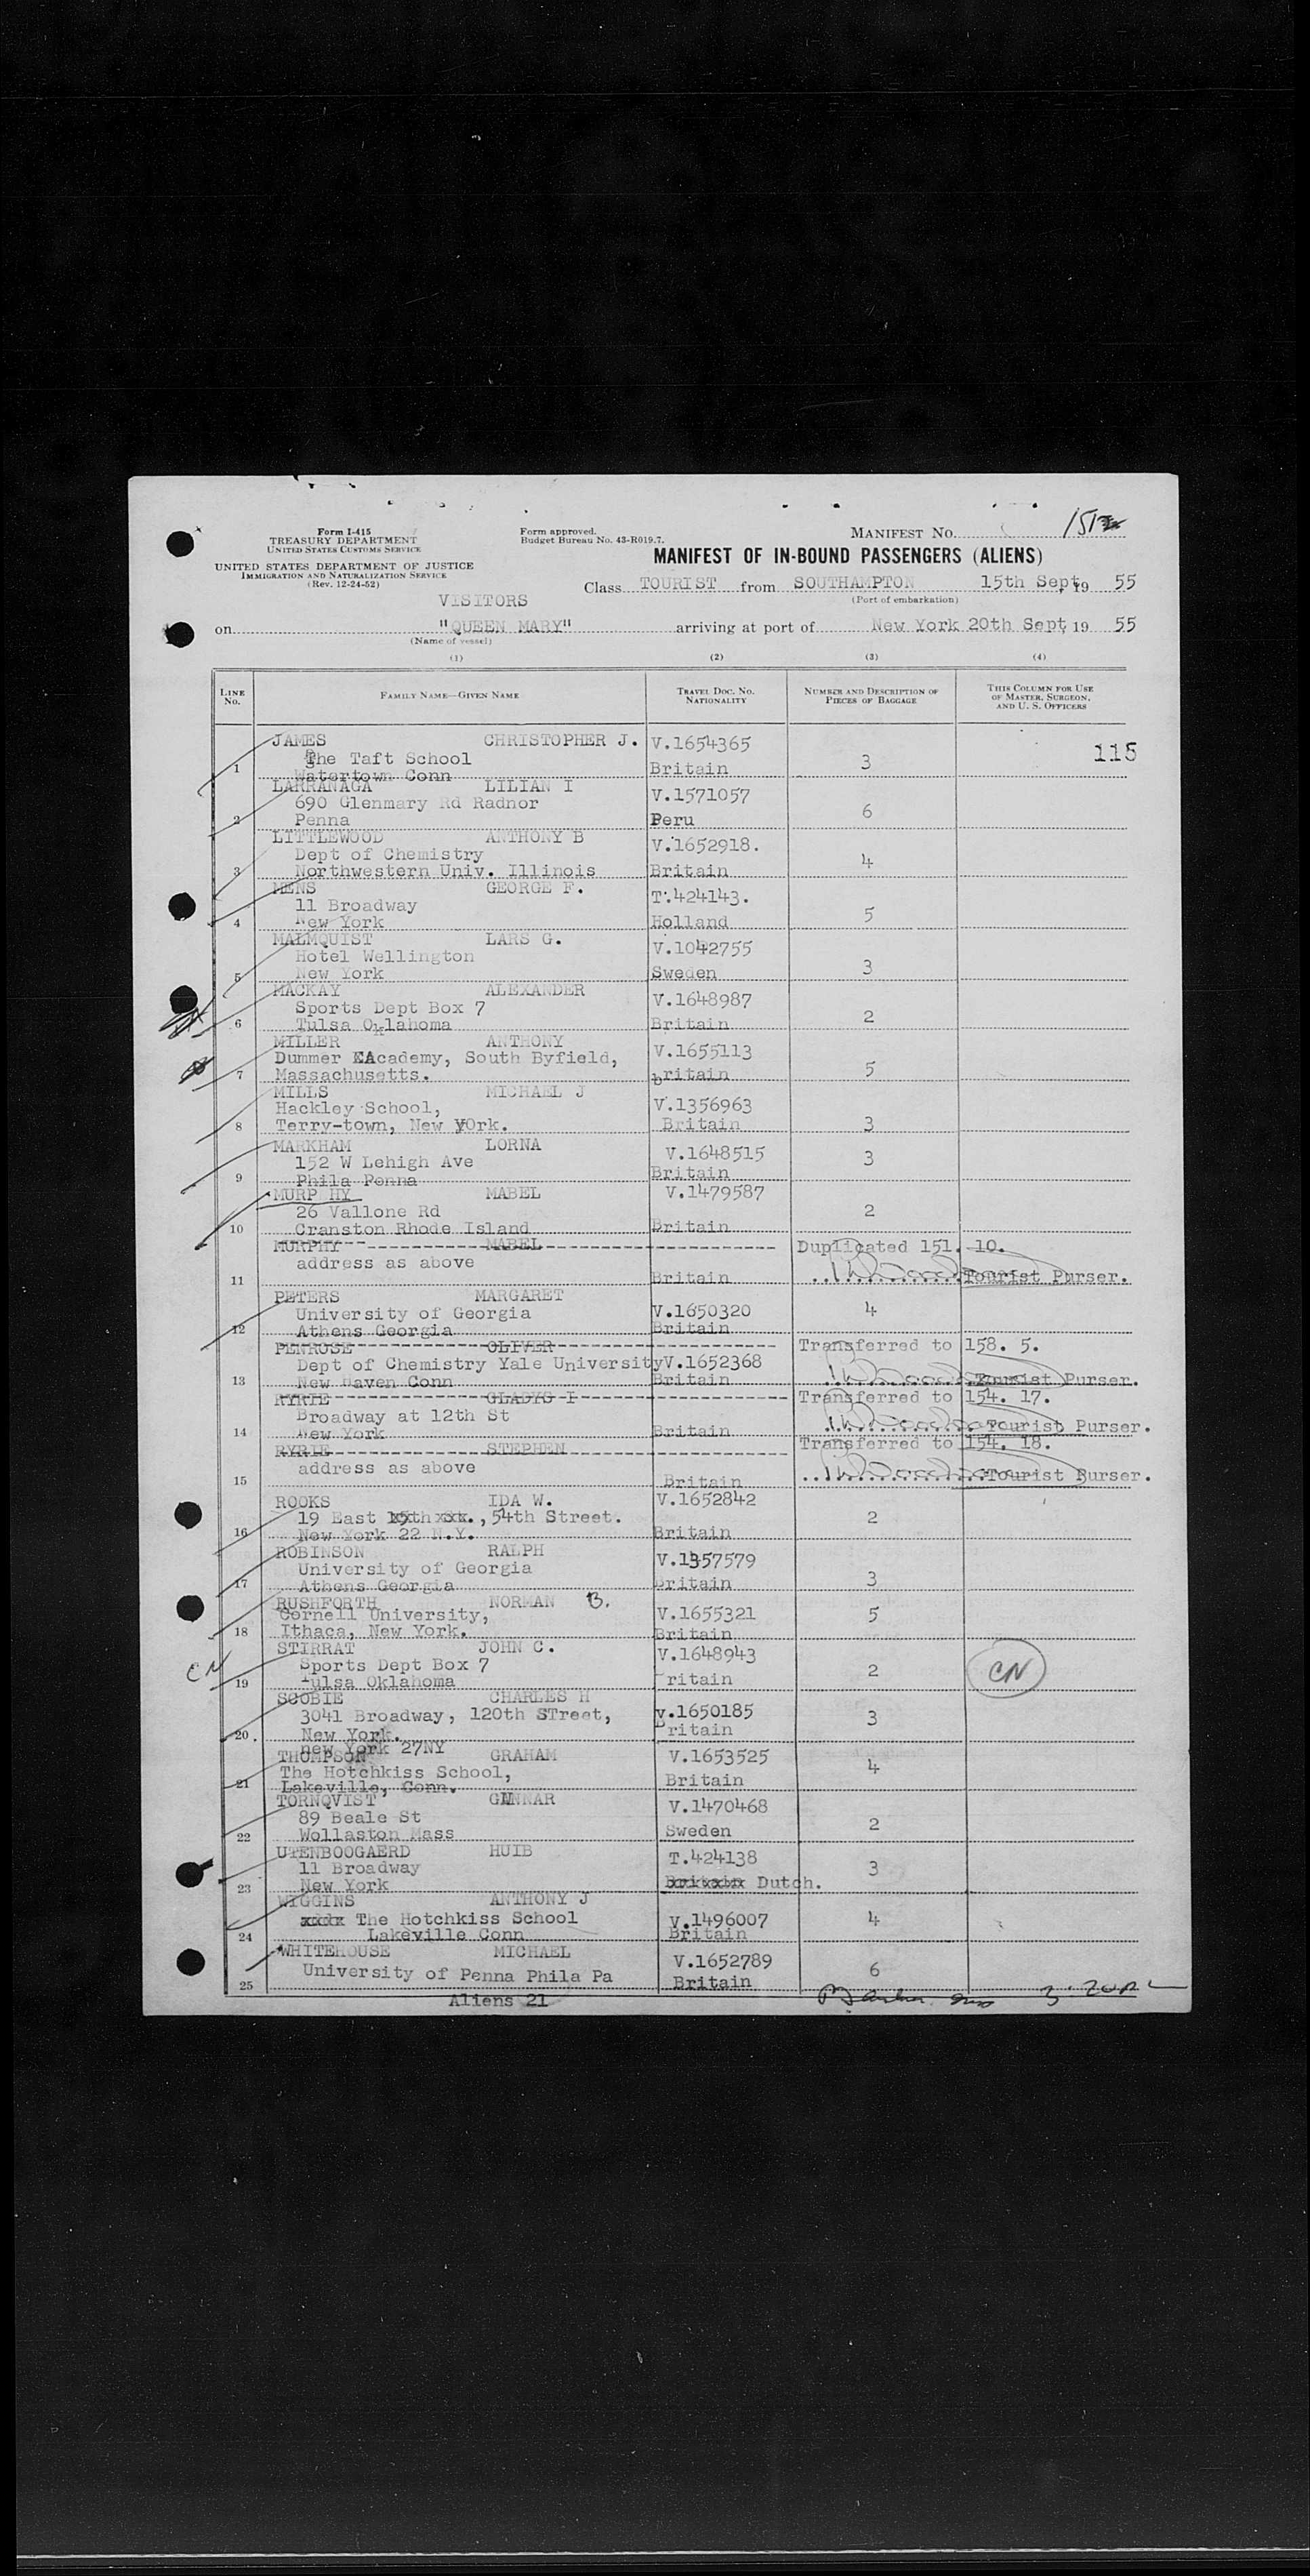 Form I-415
TREASURY DEPARTMENT
UNITED STATES CUSTOMS SERVICE
UNITED STATES DEPARTMENT OF JUSTICE
IMMIGRATION AND NATURALIZATION SERVICE
(Rev. 12-24-52)
Form approved.
Budget Bureau No. 43-R019.7.
MANIFEST NO. 151
MANIFEST OF IN-BOUND PASSENGERS (ALIENS)
Class TOURIST from SOUTHAMPTON 15th Sept, 19 55
(Port of embarkation)
VISITORS
on "QUEEN MARY" arriving at port of New York 20th Sept, 19 55
(Name of vessel)
(1) (2) (3) (4)
LINE No. FAMILY NAME—GIVEN NAME TRAVEL DOC. NO. NATIONALITY NUMBER AND DESCRIPTION OF PIECES OF BAGGAGE THIS COLUMN FOR USE OF MASTER, SURGEON, AND U. S. OFFICERS
JAMES CHRISTOPHER J. V.1654365 115
The Taft School
1 Watertown Conn Britain 3
LARRANAGA LILIAN I V.1571057
690 Glenmary Rd Radnor 6
2 Penna Peru
LITTLEWOOD ANTHONY B V.1652918.
Dept of Chemistry 4
3 Northwestern Univ. Illinois Britain
MENS GEORGE F. T.424143.
11 Broadway
4 New York Holland 5
MALMQUIST LARS G. V.1042755
Hotel Wellington
5 New York Sweden 3
MACKAY ALEXANDER V.1648987
Sports Dept Box 7 2
6 Tulsa Oklahoma Britain
MILLER ANTHONY V.1655113
Dummer EAcademy, South Byfield,
7 Massachusetts. britain 5
MILLS MICHAEL J V.1356963
Hackley School,
8 Terry-town, New YOrk. Britain 3
MARKHAM LORNA V.1648515
152 W Lehigh Ave 3
9 Phila Penna Britain
MURP HY MABEL V.1479587
26 Vallone Rd 2
10 Cranston Rhode Island Britain
MURPHY MABEL Duplicated 151. 10.
address as above
11 Britain Tourist Purser.
PETERS MARGARET
University of Georgia V.1650320 4
12 Athens Georgia Britain
PENROSE OLIVER Transferred to 158. 5.
Dept of Chemistry Yale University V.1652368
13 New Haven Conn Britain Tourist Purser.
RYRIE GLADYS I Transferred to 154. 17.
Broadway at 12th St
14 New York Britain Tourist Purser.
RYRIE STEPHEN Transferred to 154. 18.
address as above
15 Britain Tourist Purser.
ROOKS IDA W. V.1652842
19 East 15th xxx., 54th Street. 2
16 New York 22 N.Y. Britain
ROBINSON RALPH V.1357579
University of Georgia
17 Athens Georgia Britain 3
RUSHFORTH NORMAN B.
Cornell University, V.1655321 5
18 Ithaca, New York. Britain
STIRRAT JOHN C. V.1648943
CN Sports Dept Box 7 2 CN
19 Tulsa Oklahoma ritain
SCOBIE CHARLES H
3041 Broadway, 120th STreet, V.1650185 3
20. New York. Britain
new York 27NY
THOMPSON GRAHAM V.1653525
The Hotchkiss School, 4
21 Lakeville, Conn. Britain
TORNQVIST GUNNAR V.1470468
89 Beale St 2
22 Wollaston Mass Sweden
UTENBOOGAERD HUIB T.424138
11 Broadway 3
23 New York Britain Dutch.
WIGGINS ANTHONY J
xxxx The Hotchkiss School V.1496007 4
24 Lakeville Conn Britain
WHITEHOUSE MICHAEL V.1652789
University of Penna Phila Pa 6
25 Britain
Aliens 21